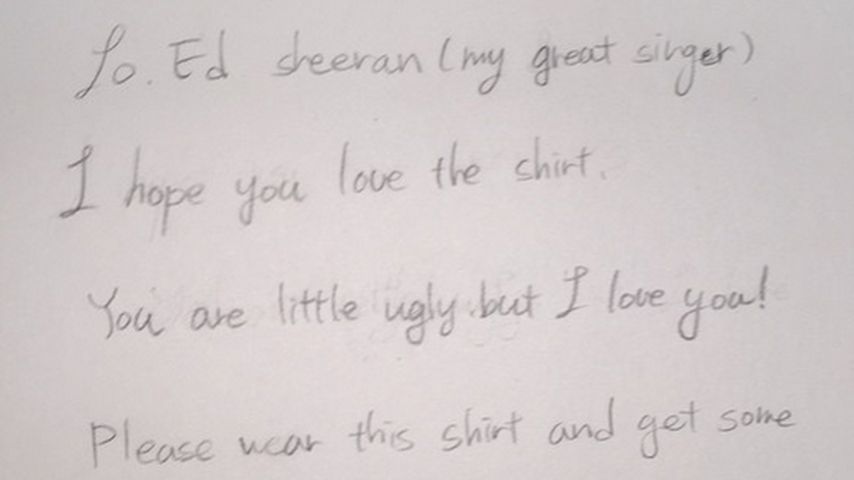 To. Ed sheeran (my great singer)
I hope you love the shirt.
You are little ugly but I love you!
Please wear this shirt and get some